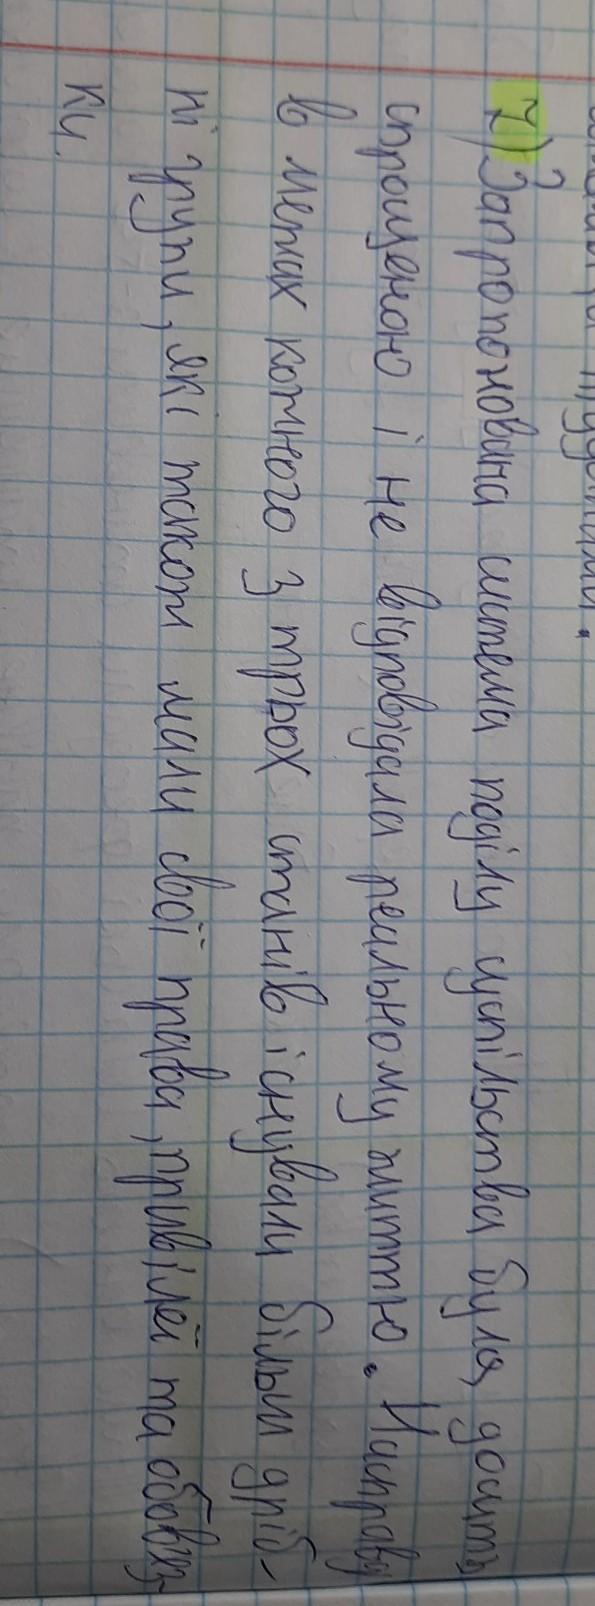 2) Запропонована система поділу суспільства була досить
спрощеною і не відповідала реальному життю. Насправді
в межах кожного з трьох станів існували більш дріб-
ні групи, які також мали свої права, привілеї та обов'яз-
ки.